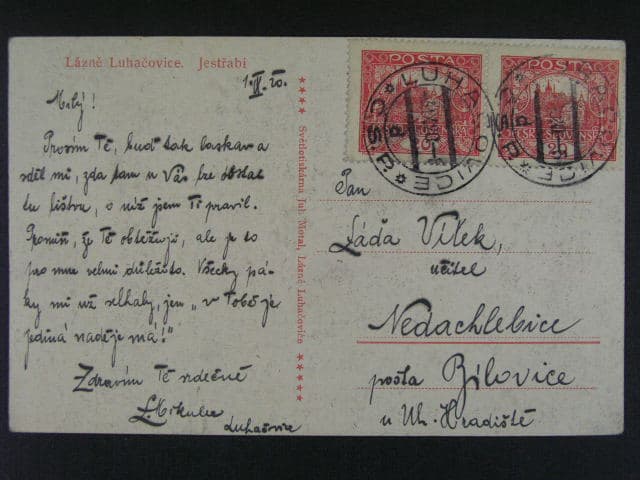 Lázně Luhačovice. Jestřabí
1.IV.20.
Milý!
Prosím Tě, buď tak laskav a
sděl mi, zda tam u Vás lze dostat
tu lištvu, o níž jsem Ti pravil.
Promiň, že Tě obtěžuji, ale je to
pro mne velmi důležito. Všecky pá-
ky mi už selhaly, jen „v Tobě je
jediná naděje má!"
Zdravím Tě srdečně
Mikulec
Luhačovice
Světlotiskárna Jul. Motal, Lázně Luhačovice
POŠTA
POŠTA
LUHAČOVICE
Pan
Láďa Vítek,
učitel
Nedachlebice
pošta Bílovice
u Uh. Hradiště